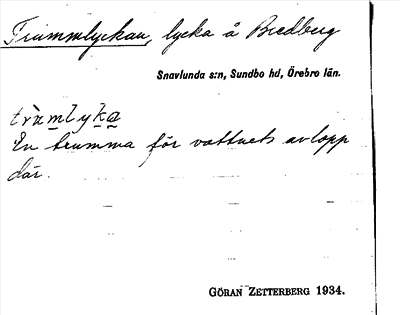 Trummlyckan, lycka å Bredberg
Snavlunda s:n, Sundbo hd, Örebro län.
En trumma för vattnets avlopp
där.
GÖRAN ZETTERBERG 1934.